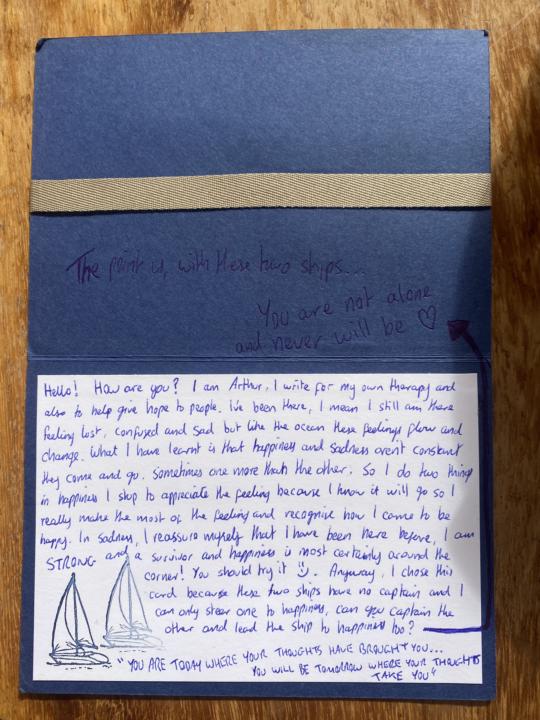 The point is, with these two ships...
You are not alone
and never will be ♡
Hello! How are you? I am Arthur, I write for my own therapy and
also to help give hope to people. I've been there, I mean I still am there
feeling lost, confused and sad but like the ocean these feelings flow and
change. What I have learnt is that happiness and sadness arent constant
they come and go. Sometimes one more than the other. So I do two things
in happiness I stop to appreciate the feeling because I know it will go so I
really make the most of the feeling and recognise how I came to be
happy. In sadness, I reassure myself that I have been here before, I am
STRONG and a survivor and happiness is most certainly around the
corner! You should try it :). Anyway, I chose this
card because these two ships have no captain and I
can only steer one to happiness, can you captain the
other and lead the ship to happiness too?
"YOU ARE TODAY WHERE YOUR THOUGHTS HAVE BROUGHT YOU...
YOU WILL BE TOMORROW WHERE YOUR THOUGHTS
TAKE YOU"